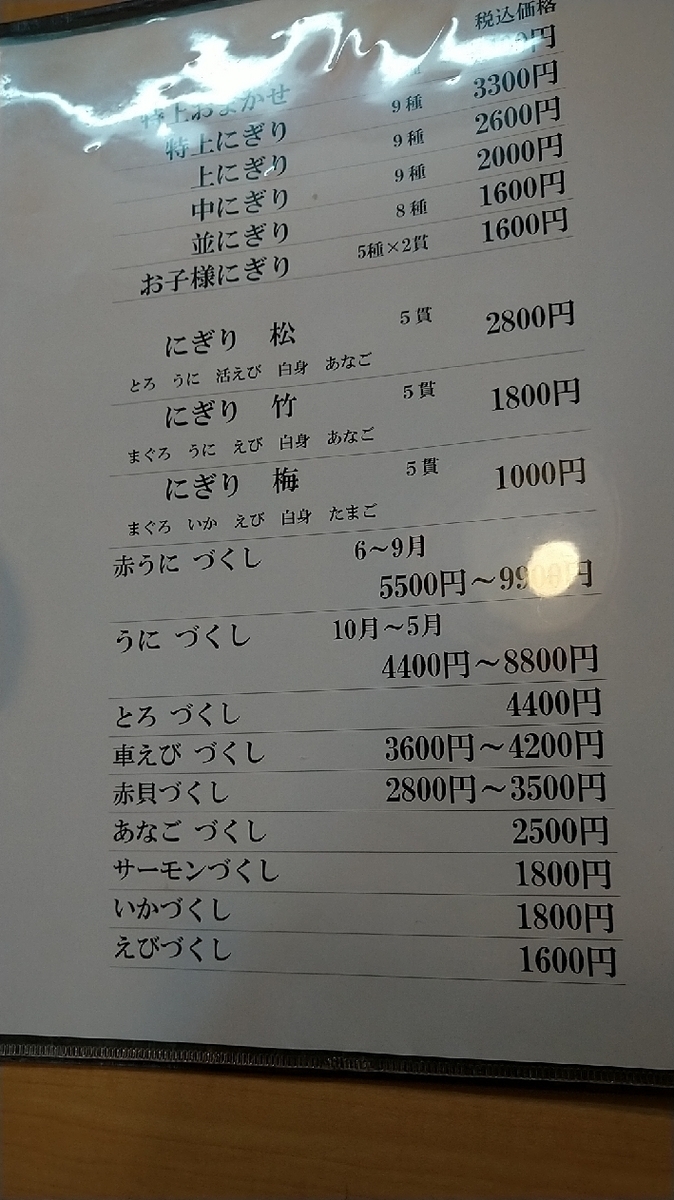 税込価格
特上おまかせ 円
特上にぎり 9種 3300円
上にぎり 9種 2600円
中にぎり 9種 2000円
並にぎり 8種 1600円
お子様にぎり 5種×2貫 1600円
にぎり 松 5貫 2800円
とろ うに 活えび 白身 あなご
にぎり 竹 5貫 1800円
まぐろ うに えび 白身 あなご
にぎり 梅 5貫 1000円
まぐろ いか えび 白身 たまご
赤うに づくし 6〜9月
5500円〜9900円
うに づくし 10月〜5月
4400円〜8800円
とろ づくし 4400円
車えび づくし 3600円〜4200円
赤貝づくし 2800円〜3500円
あなご づくし 2500円
サーモンづくし 1800円
いかづくし 1800円
えびづくし 1600円